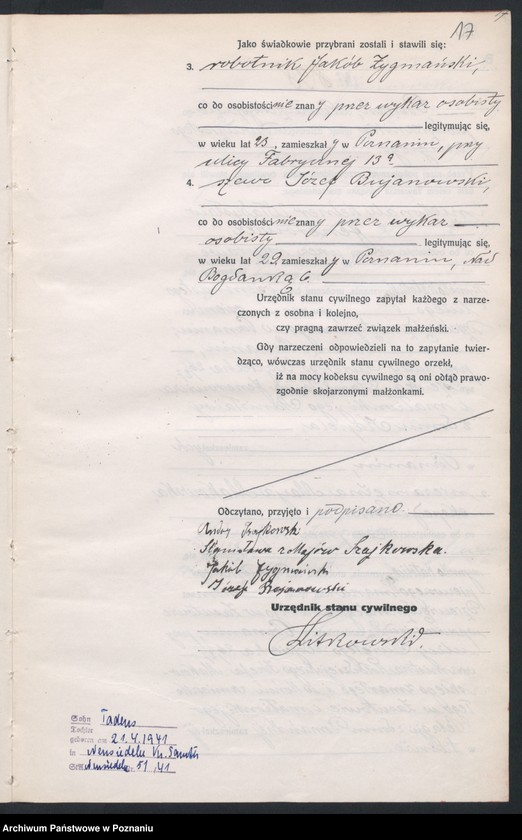 17
Jako świadkowie przybrani zostali i stawili się:
3. robotnik Jakób Zygmański,
co do osobistości nie znany przez wykaz osobisty
legitymując się,
w wieku lat 23, zamieszkały w Poznaniu, przy
ulicy Fabrycznej 13a
4. szewc Józef Bujanowski,
co do osobistości nie znany przez wykaz
osobisty legitymując się,
w wieku lat 29, zamieszkały w Poznaniu, Nad
Bogdanką 6.
Urzędnik stanu cywilnego zapytał każdego z narze-
czonych z osobna i kolejno,
czy pragną zawrzeć związek małżeński.
Gdy narzeczeni odpowiedzieli na to zapytanie twier-
dząco, wówczas urzędnik stanu cywilnego orzekł,
iż na mocy kodeksu cywilnego są oni odtąd prawo-
zgodnie skojarzonymi małżonkami.
Odczytano, przyjęto i podpisano.
Stanisława z Majów Szajkowska.
Jakób Zygmański
Józef Bujanowski
Urzędnik stanu cywilnego
Sohn Tadeus
Tochter
geboren am 21.4.1941
in Neusiedeln Kr. Samter
Neusiedeln 51/41
Archiwum Państwowe w Poznaniu